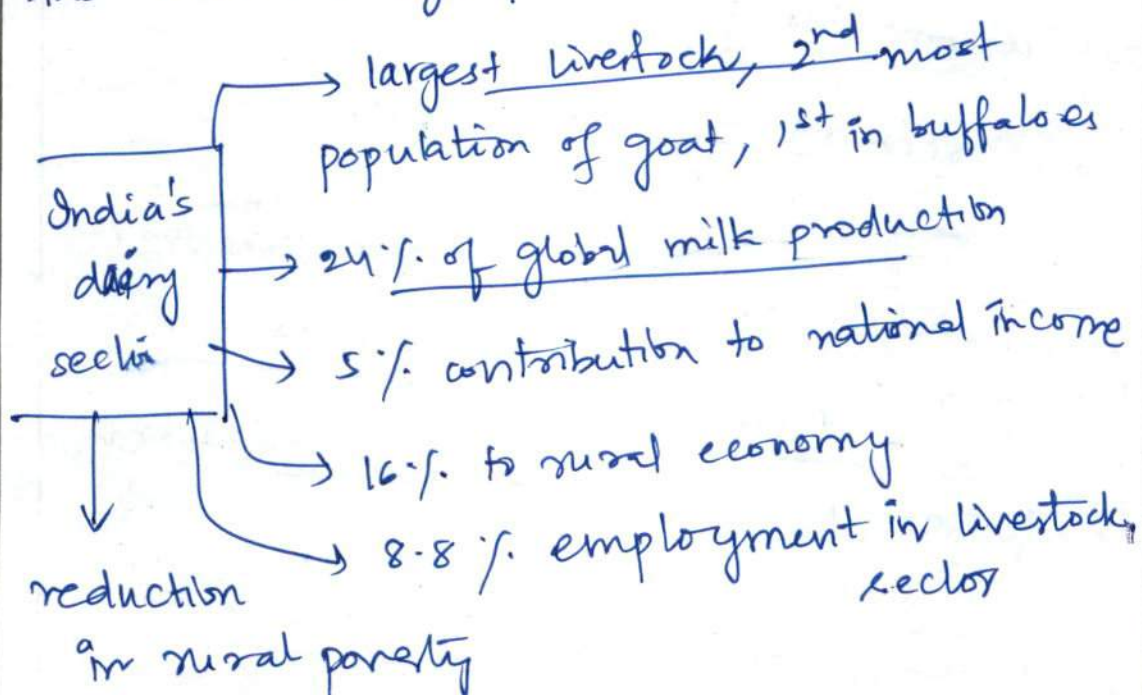 largest livestock, 2nd most
population of goat, 1st in buffaloes
India's
dairy
sector
24% of global milk production
5% contribution to national income
16% to rural economy
8.8% employment in livestock
sector
reduction
in rural poverty